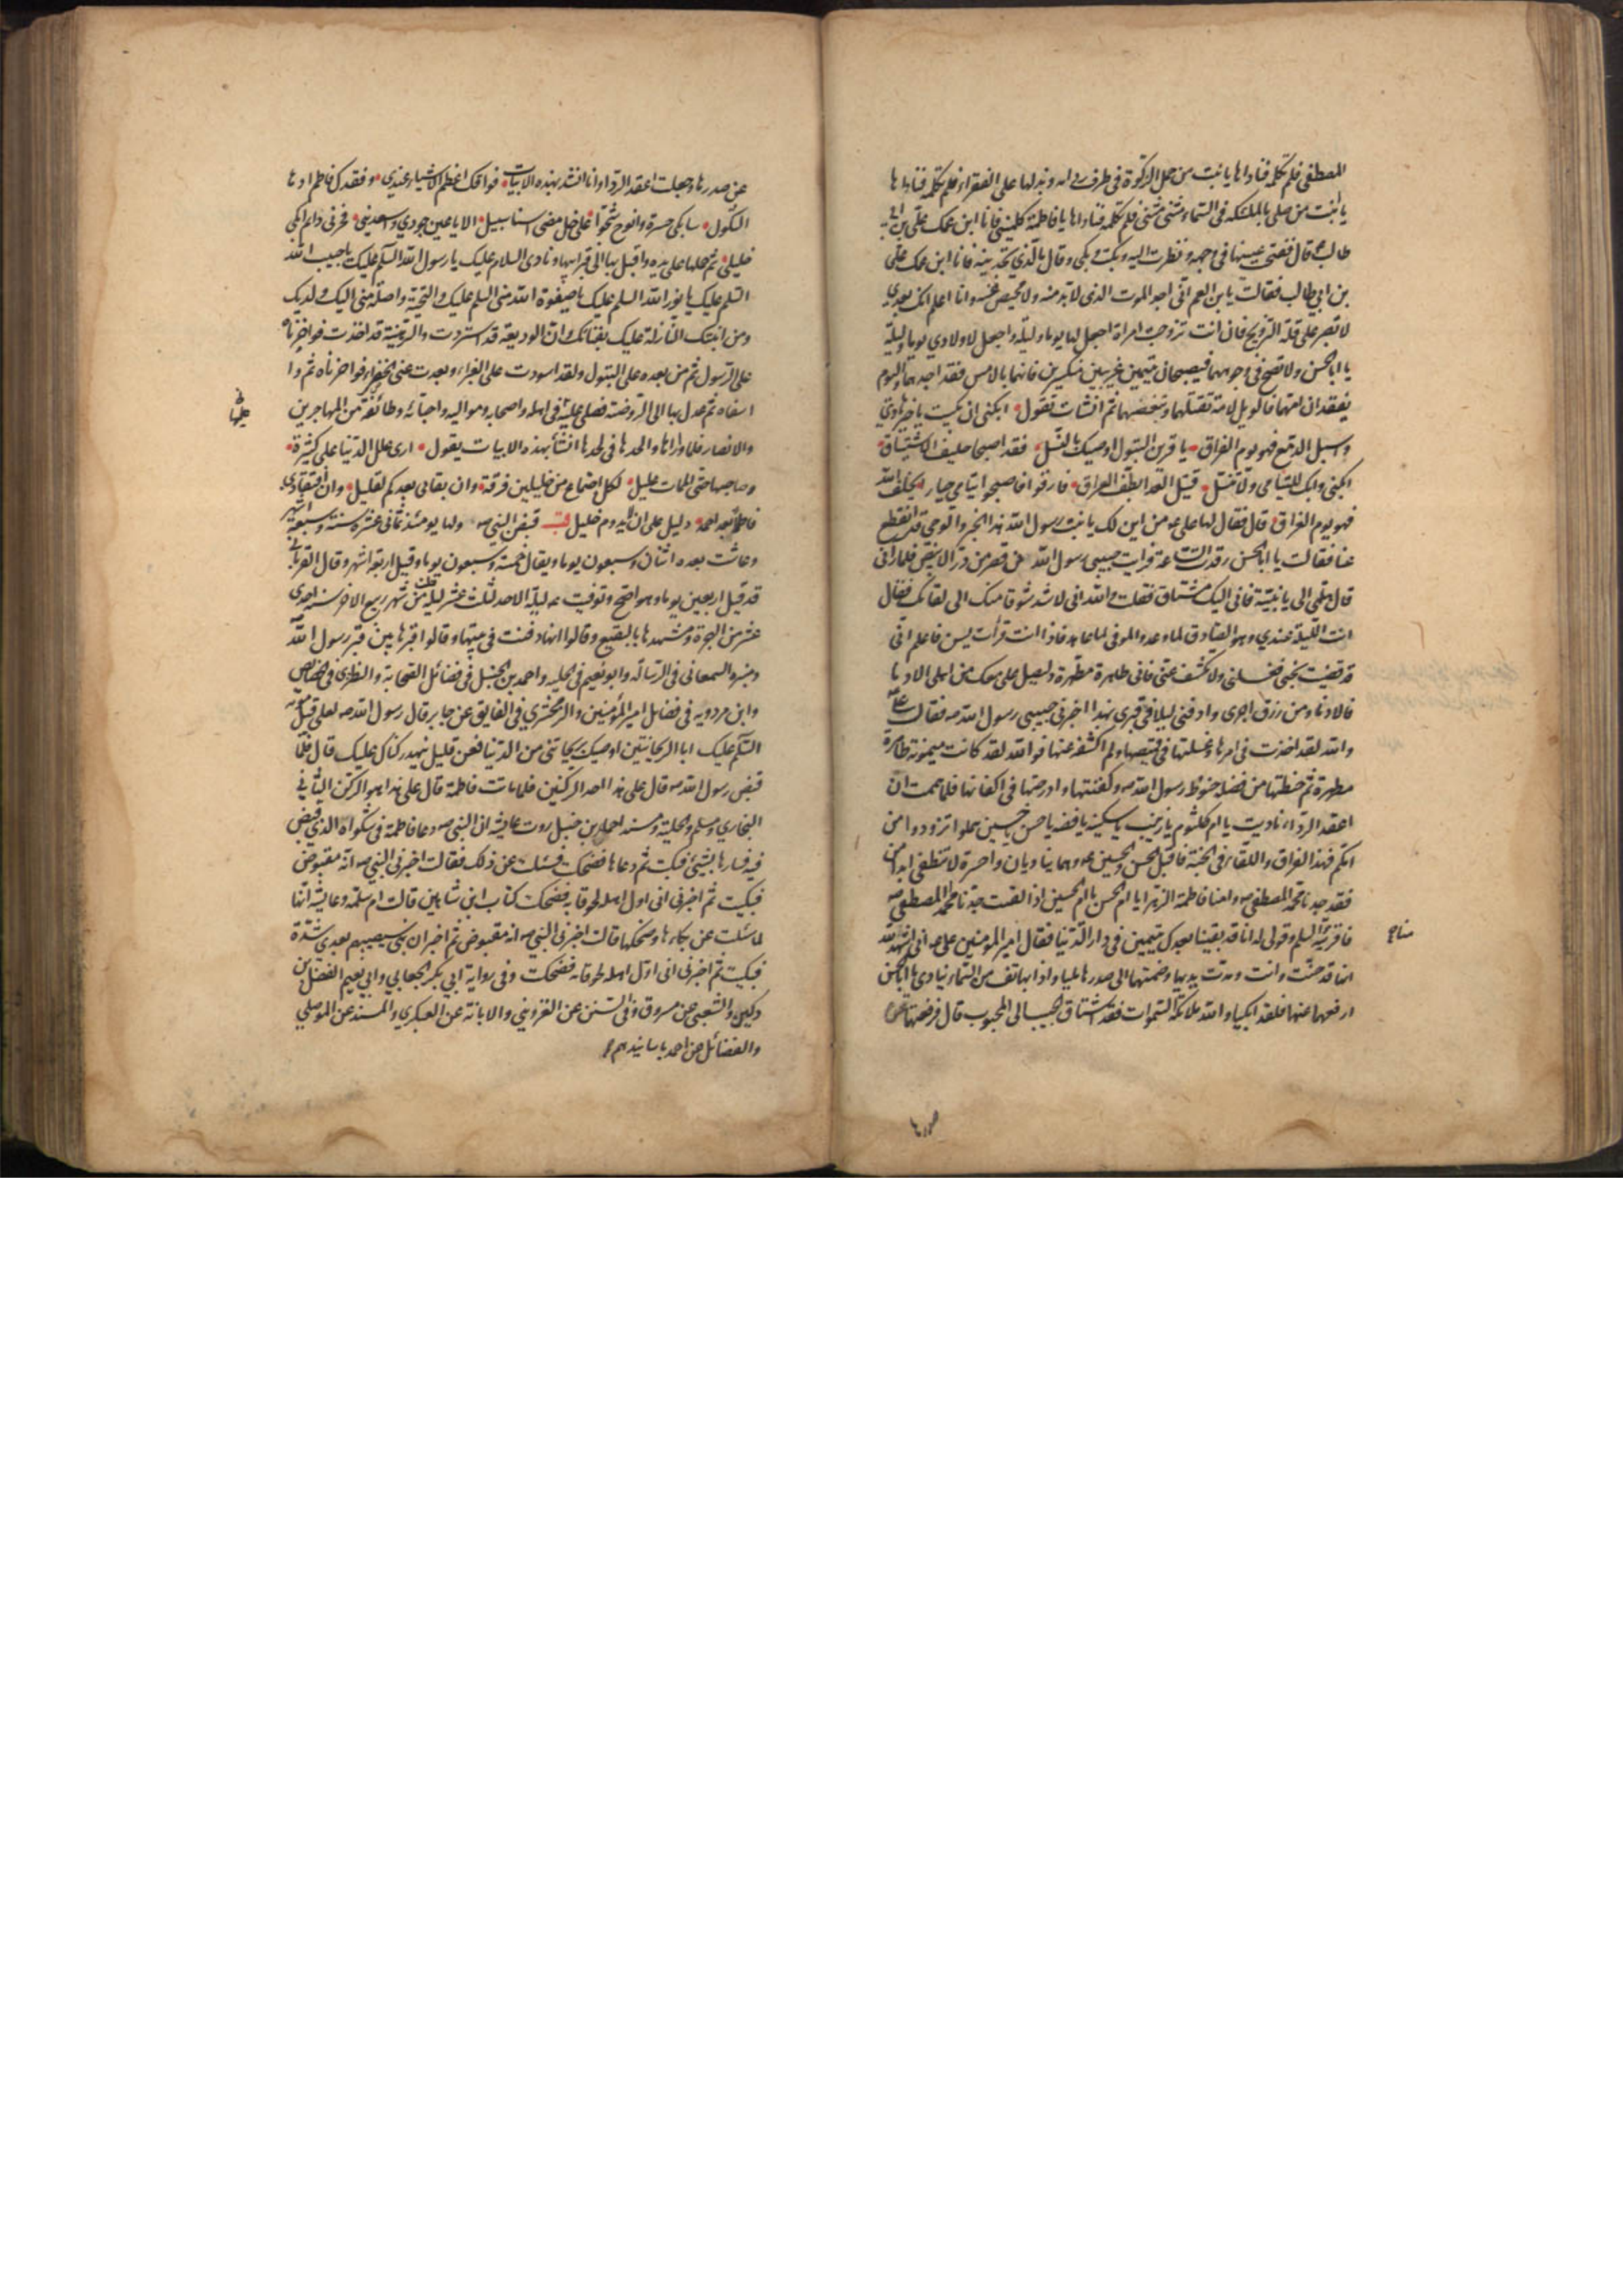 المصطفى فلم تكلمه فناداها يا بنت من حمل الزكوة فى طرف ردائه وبذلها على الفقراء فلم تكلمه فناداها
يا ابنت من صلى بالملئكة فى السماء مثنى مثنى فلم تكلمه فناداها يا فاطمة كلمينى فانا ابن عمك على بن ابى
طالب قال ففتحت عينيها فى وجهه ونظرت اليه وبكت وبكى وقال ما الذى تجدينه فانا ابن عمك على
بن ابى طالب فقالت يا بن العم انى اجد الموت الذى لا بد منه ولا محيص عنه وانا اعلم انك بعدى
لا تصبر على قلة التزويج فان انت تزوجت امراة اجعل لها يوما وليلة واجعل لاولادى يوما وليلة
يا ابا الحسن ولا تصح فى وجوههما فيصبحان يتيمين غريبين منكسرين فانهما بالامس فقدا جدهما واليوم
يفقدان امهما فالويل لامة تقتلهما وتبغضهما ثم انشات تقول ابكنى ان بكيت يا خير هادى
واسبل الدمع فهو يوم الفراق يا قرين البتول اوصيك بالنسل فقد اصبحا حليف اشتياق
ابكنى وابك لليتامى ولا تنس قتيل العدا بطف العراق فارقوا فاصبحوا يتامى حيارى يخلف الله
فهو يوم الفراق قال فقال لها على ع من اين لك يا بنت رسول الله هذا الخبر والوحى قد انقطع
عنا فقالت يا ابا الحسن رقدت الساعة فرايت حبيبى رسول الله فى قصر من در الابيض فلما رانى
قال هلمى الى يا بنية فانى اليك مشتاق فقلت والله انى لاشد شوقا منك الى لقائك فقال
انت الليلة عندى وهو الصادق لما وعد والموفى لما عاهد فاذا انت قرأت يس فاعلم انى
قد قضيت نحبى فغسلنى ولا تكشف عنى فانى طاهرة مطهرة وليصل على معك من اهلى الادنى
فالادنى ومن رزق اجرى وادفنى ليلا فى قبرى بهذا اخبرنى حبيبى رسول الله ص فقال على
والله لقد اخذت فى امرها وغسلتها فى قميصها ولم اكشفه عنها فوالله لقد كانت ميمونة طاهرة
مطهرة ثم حنطتها من فضلة حنوط رسول الله ص وكفنتها وادرجتها فى اكفانها فلما هممت ان
اعقد الرداء ناديت يا ام كلثوم يا زينب يا سكينة يا فضه يا حسن يا حسين هلموا تزودوا من
امكم فهذا الفراق واللقاء فى الجنة فاقبل الحسن والحسين ع وهما يناديان واحسرة لا تنطفى ابدا من
فقد جدنا محمد المصطفى ص وامنا فاطمة الزهرا يا ام الحسن يا ام الحسين اذا لقيت جدنا محمد المصطفى ص
فاقرئيه منا السلم وقولى له انا قد بقينا بعدك يتيمين فى دار الدنيا فقال امير المؤمنين على ع انى اشهد الله
انها قد حنت وانت ومدت يديها وضمتهما الى صدرها مليا واذا بهاتف من السماء ينادى يا ابا الحسن
ارفعهما عنها فلقد ابكيا والله ملائكة السموات فقد اشتاق الحبيب الى المحبوب قال فرفعتهما عن
صدرها
عن صدرها وجعلت اعقد الرداء وانا انشد بهذه الابيات فراقك اعظم الاشياء عندى وفقدك فاطم ادهى
الثكول سابكى حسرة وانوح شجوا على خل مضى اسنا سبيل الا يا عين جودى واسعدينى فحزنى دائم ابكى
خليلى ثم حملها على يده واقبل بها الى قبر ابيها ونادى السلام عليك يا رسول الله السلم عليك يا حبيب الله
السلم عليك يا نور الله السلم عليك يا صفوة الله منى السلم عليك والتحية واصلة منى اليك ولديك
ومن ابنتك النازلة عليك بفنائك وان الوديعة قد استردت والرهينة قد اخذت فواحزناه
على الرسول ثم من بعده على البتول ولقد اسودت على الغبراء وبعدت عنى الخضراء فواحزناه ثم وا
اسفاه ثم عدل بها الى الروضة فصلى عليها فى اهله واصحابه ومواليه واحبائه وطائفة من المهاجرين
والانصار فلما واراها والحدها فى لحدها انشأ بهذه الابيات يقول ارى علل الدنيا على كثيرة
وصاحبها حتى الممات عليل لكل اجتماع من خليلين فرقة وان بقائى بعدكم لقليل وان افتقادى
فاطما بعد احمد دليل على ان لا يدوم خليل قب قبض النبى ص ولها يومئذ ثمانى عشرة سنة وسبعة اشهر
وعاشت بعده اثنان وسبعون يوما ويقال خمسة وسبعون يوما وقيل اربعة اشهر وقال القربانى
قد قيل اربعين يوما وهو اصح وتوفيت ع ليلة الاحد لثلث عشر ليلة خلت من شهر ربيع الاخر سنة احدى
عشر من الهجرة ومشهدها بالبقيع وقالوا انها دفنت فى بيتها وقالوا قبرها بين قبر رسول الله
ومنبره السمعانى فى الرسالة وابو نعيم فى الحلية واحمد بن حنبل فى فضائل الصحابة والنطنزى فى الخصائص
وابن مردويه فى فضايل امير المؤمنين والزمخشرى فى الفايق عن جابر قال رسول الله ص لعلى قبل موته
السلم عليك ابا الريحانتين اوصيك بريحانتى من الدنيا فعن قليل ينهد ركناك عليك قال فلما
قبض رسول الله ص قال على هذا احد الركنين فلما ماتت فاطمة قال على هذا هو الركن الثانى
البخارى ومسلم والحلية ومسند احمد بن حنبل روت عايشة ان النبى ص دعا فاطمة فى شكواه الذى قبض
فيه فسارها بشيئ فبكت ثم دعاها فضحكت فسئلت عن ذلك فقالت اخبرنى النبى ص انه مقبوض
فبكيت ثم اخبرنى انى اول اهله لحوقا به فضحكت كتاب ابن شاهين قالت ام سلمة وعايشة انها
لما سئلت عن بكاءها وضحكها قالت اخبرنى النبى ص انه مقبوض ثم اخبر ان بنى سيصيبهم بعدى شدة
فبكيت ثم اخبرنى انى اول اهله لحوقا به فضحكت وفى رواية ابى بكر الجعابى وابى نعيم الفضل بن
دكين والشعبى عن مسروق وفى السنن عن القزوينى والابانة عن العكبرى والمسند عن الموصلى
والفضائل عن احمد باسانيدهم